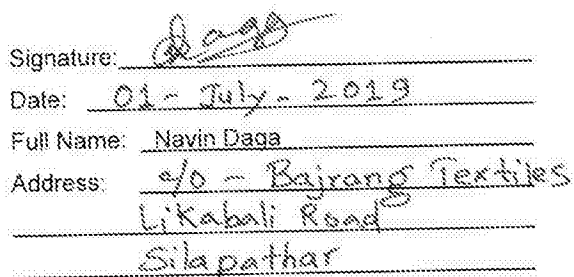 Signature: Daga
Date: 01 - July - 2019
Full Name: Navin Daga
Address: c/o - Bajrang Textiles
Likabali Road
Silapathar